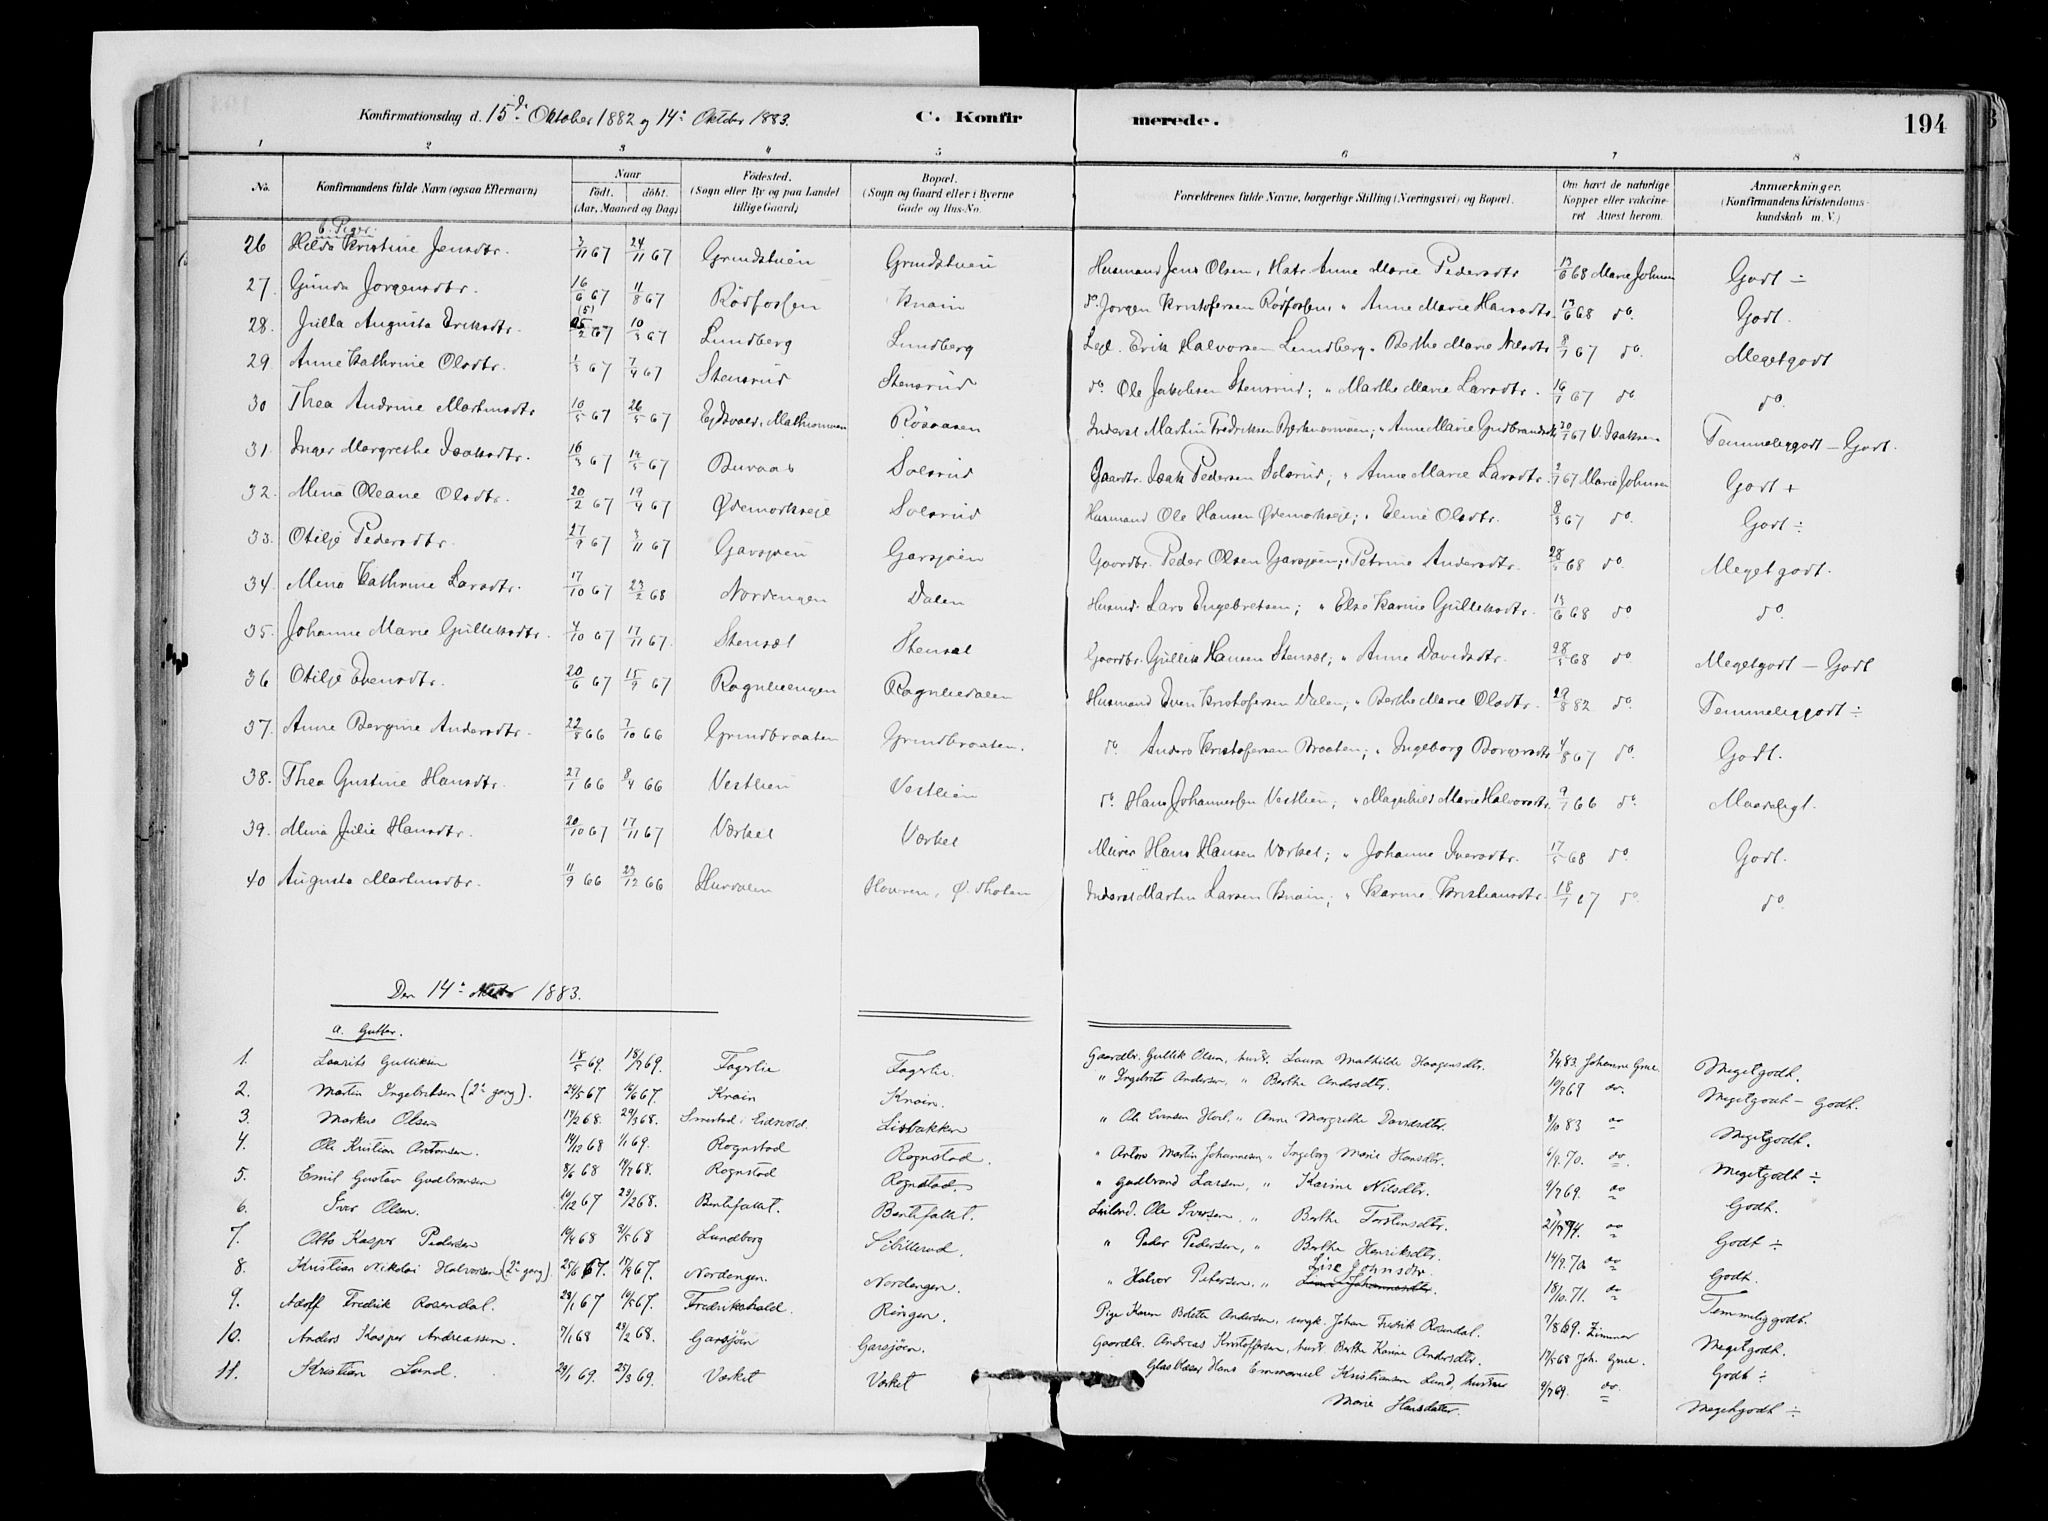 Konfirmationsdag d. 15d. Oktober 1882 og 14e Oktober 1883.
C. Konfirmerede.
194
1 2 3 4 5 6 7 8
No. Konfirmandens fulde Navn (ogsaa Efternavn) Naar födt. döbt. (Aar, Maaned og Dag) Födested. (Sogn eller By og paa Landet tillige Gaard) Bopæl. (Sogn og Gaard eller i Byerne Gade og Hus-No. Forældrenes fulde Navne, borgerlige Stilling (Næringsvei) og Bopæl. Om havt de naturlige Kopper eller vakcineret Attest herom. Anmærkninger. (Konfirmandens Kristendomskundskab m. V.)
b. Piger.
26 Hilda Kristine Jensdtr. 3/11 67 24/11 67 Grindstuen Grindstuen Husmand Jens Olsen, Hstr Anne Marie Pedersdtr 13/6 68 Marie Johnsen Godt ÷
27. Gunda Jørgensdtr. 16/6 67 11/8 67 Rödfossen Knain do. Jørgen Kristofersen Rödfossen " Anne Marie Hansdtr. 13/6 68 do. Godt.
28. Julla Augusta Eriksdtr. 25/2 67 10/3 67 Lundberg Lundberg Lejl. Erik Halvorsen Lundberg " Berthe Marie Nilsdtr 8/7 67 do. Megetgodt
29 Anne Kathrine Olsdtr. 1/3 67 7/4 67 Stensrud Stensrud do Ole Jakobsen Stensrud; " Marthe Marie Larsdtr. 16/7 67 do do.
30 Thea Andrine Martinsdtr 10/5 67 26/5 67 Ejdsvold, Mathismoen Rösaasen Inderst Martin Fredriksen Bjerknesmoen; " Anne Marie Gudbrandsdtr 20/7 67 V. Isaksen Temmeliggodt – Godt.
31. Inger Margrethe Isaksdtr. 16/3 67 14/5 67 Buraas Solsrud Gaardbr. Isak Pedersen Solsrud; " Anne Marie Larsdtr. 2/7 67 Marie Johnsen Godt +
32. Mina Oleane Olsdtr. 20/2 67 19/4 67 Ødemarkseje Solsrud Husmand Ole Hansen Ødemarkseje; " Eline Olsdtr. 8/3 67 do. Godt ÷
33. Otilje Pedersdtr. 27/9 67 3/11 67 Garsjøen Garsjøen Gaardbr. Peder Olsen Garsjøen; " Petrine Andersdtr. 28/5 68 do. Megetgodt.
34. Mina Kathrine Larsdtr. 17/10 67 23/2 68 Nordengen Dalen Husmd. Lars Engebretsen; " Else Karine Gulliksdtr. 13/6 68 do do.
35. Johanne Marie Gulliksdtr. 4/10 67 17/11 67. Stensæt Stensæt Gaardbr. Gullik Hansen Stensæt; " Anne Davidsdtr. 28/5 68 do Megetgodt – Godt
36 Otilje Evensdtr. 20/6 67 15/9 67 Rognliengen Rognliedalen Husmand Even Kristofersen Dalen; " Berthe Marie Olsdtr. 29/8 82 do. Temmeliggodt ÷
37. Anne Bergine Andersdtr. 22/8 66 7/10 66 Grindbraaten Grindbraaten. do. Anders Kristofersen Braaten; " Ingeborg Borgersdtr 4/8 67 do. Godt.
38. Thea Gustine Hansdtr. 27/1 66 8/4 66 Vestlien Vestlien do. Hans Johannessen Vestlien; " Magnhild Marie Halvorsdtr. 9/7 66 do. Maadeligt.
39. Mina Julie Hansdtr. 20/10 67 17/11 67 Værket Værket Murer Hans Hansen Værket; " Johanne Iversdtr. 17/5 68 do. Godt.
40 Augusta Martinsdtr. 11/9 66 23/12 66 Hurdalen Hovren, Ø. Thoten Inderst Martin Larsen Knain; " Karine Kristiansdtr. 18/7 67 do. do.
Den 14e Oktbr 1883.
a. Gutter.
1. Laurits Gulliksen 18/5 69. 18/7 69. Fagerlie Fagerlie. Gaardbr. Gullik Olsen, hustr. Laura Mathilde Haagensdtr. 5/4 83. Johanne Grue. Megetgodt.
2. Martin Ingebretsen (2n gang). 24/5 67 16/6 67. Knain Knain. " Ingebret Andersen, " Berthe Andersdtr. 10/9 67 do. Megetgodt – Godt.
3. Markus Olsen 19/2 68. 29/3 68. Smestad i Eidsvold. Lisbakken " Ole Evensen Hoel, " Anne Margrethe Davidsdtr. 8/10 83 do Megetgodt.
4. Ole Kristian Antonsen. 14/12 68 1/1 69. Rognstad Rognstad. " Anton Martin Johannesen " Ingeborg Marie Hansdtr. 6/9. 70. do. Megetgodt ÷
5. Emil Gustav Gudbransen 8/6 68 19/7 68. Rognstad Rognstad. " Gudbrand Larsen, " Karine Nilsdtr. 9/7 69. do Godt.
6. Iver Olsen. 10/12 67 23/2 68. Bentefallet. Bentefallet. Leilænd. Ole Iversen, " Berthe Torstensdtr. 21/7 74. do Godt ÷
7. Otto Kasper Pedersen 10/4 68 31/5 68 Lundberg Sibillerud. " Peder Pedersen, " Berthe Henriksdtr. 14/9. 70 do Godt.
8. Kristian Nikolai Halvorsen (2n gang). 25/6 67. 15/9 67. Nordengen. Nordengen. " Halvor Petersen, " Lise Johnsdtr. 18/10. 71. do Temmeliggodt.
9. Adolf Fredrik Rosendal. 28/1 67 10/5 67. Fredrikshald. Ringen. Pige Karen Bolette Andersen, ungk. Johan Fredrik Rosendal. 7/8 69. Zimmer Megetgodt.
10. Anders Kasper Andreassen. 7/1 68 23/2 68. Garsjöen Garsjöen. Gaardbr. Andreas Kristoffersen, hustr. Berthe Karine Andersdtr. 17/5 68 Joh. Grue. Godt ÷
11. Kristian Lund. 29/1 69. 25/3 69. Værket Værket Glasblæser Hans Emmanuel Kristiansen Lund, hustru 9/7 69. do Megetgodt ÷
Marie Hansdatter.